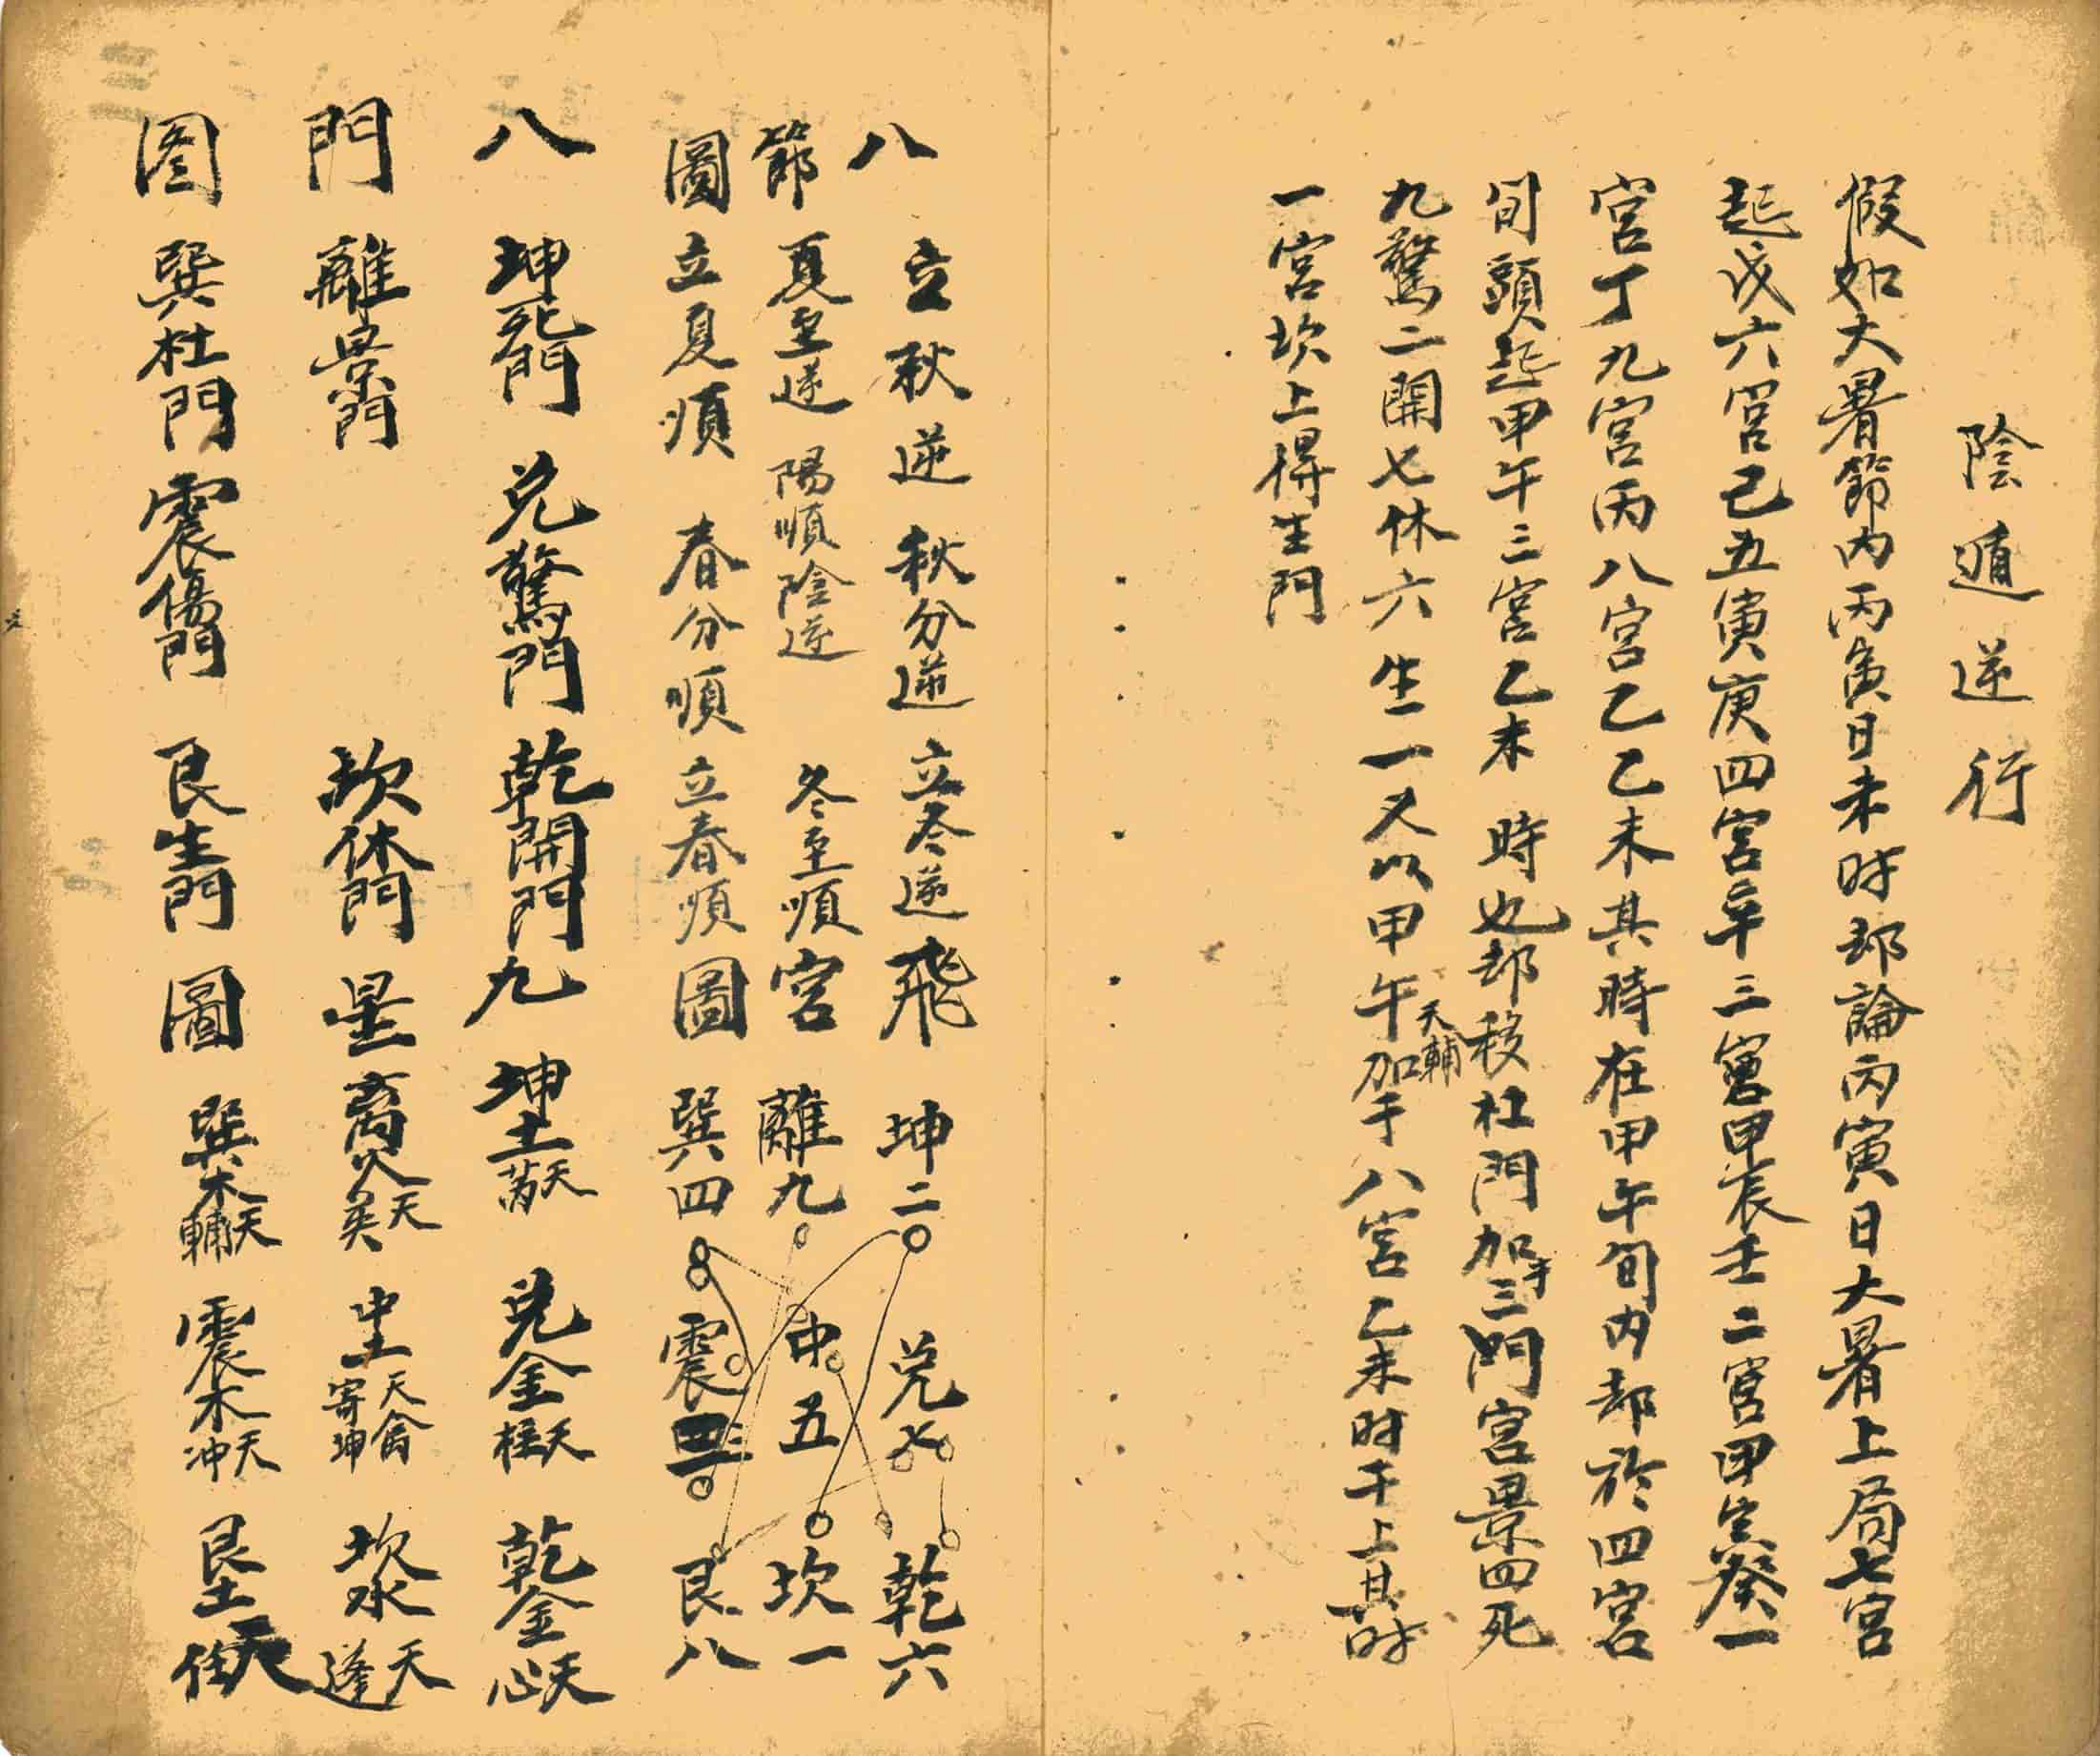 陰遁逆行
假如大暑節內丙寅日未时却論丙寅日大暑上局七宮
起戊六宮己五寅庚四宮辛三宮甲辰壬二宮甲寅癸一
宮丁九宮丙八宮乙乙未其時在甲午旬内却於四宮
旬頭起甲午三宮乙未時也却移杜門加于三門宮景四死
九驚二開七休六生一又以甲午天輔加于八宮乙未时干上其时
一宮坎上得生門
八 立秋逆 秋分逆 立冬逆 飛 坤二 兑七 乾六
節 夏至逆 陽順陰逆 冬至順 宮 離九 中五 坎一
圖 立夏順 春分順 立春順 圖 巽四 震三 艮八
八 坤死門 兑驚門 乾開門 九 坤土天芮 兑金天柱 乾金天心
門 離景門 坎休門 星 离火天英 中土天禽寄坤 坎水天逢
图 巽杜門 震傷門 艮生門 圖 巽木天輔 震木天冲 艮土天任